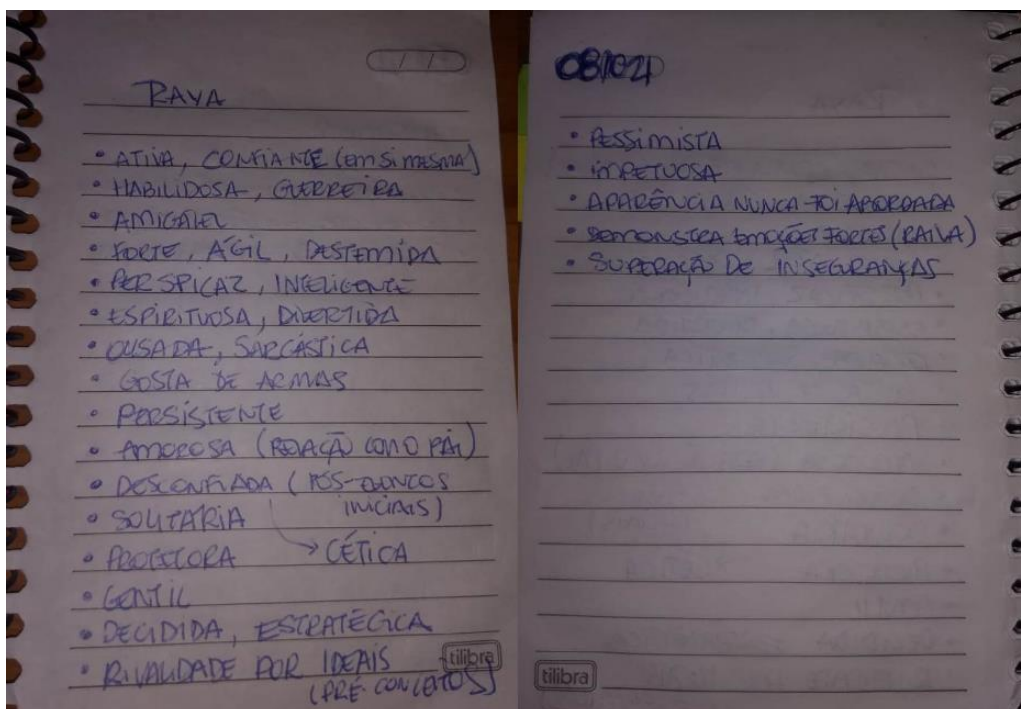 RAYA
• ATIVA, CONFIANTE (em si mesma)
• HABILIDOSA, GUERREIRA
• AMIGÁVEL
• FORTE, ÁGIL, DESTEMIDA
• PERSPICAZ, INTELIGENTE
• ESPIRITUOSA, DIVERTIDA
• OUSADA, SARCÁSTICA
• GOSTA DE ARMAS
• PERSISTENTE
• AMOROSA (RELAÇÃO COM O PAI)
• DESCONFIADA (PÓS-EVENTOS
INICIAIS)
• SOLITÁRIA
• PROTETORA → CÉTICA
• GENTIL
• DECIDIDA, ESTRATÉGICA
• RIVALIDADE POR IDEAIS
(PRÉ-CONCEITOS)
tilibra
• PESSIMISTA
• IMPETUOSA
• APARÊNCIA NUNCA FOI ABORDADA
• DEMONSTRA EMOÇÕES FORTES (RAIVA)
• SUPERAÇÃO DE INSEGURANÇAS
tilibra